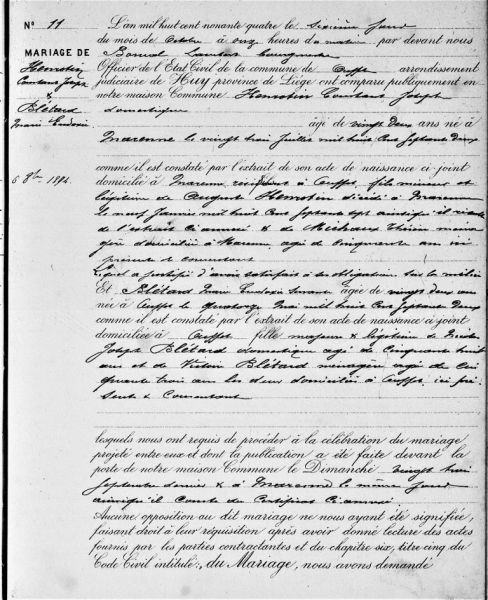 N° 11
L'an mil huit cent nonante quatre le sixième jour
du mois de Octobre à onze heures du matin par devant nous
MARIAGE DE
Officier de l'Etat Civil de la commune de arrondissement
Hemotin
Constant Joseph
judiciaire de Huy province de Liège ont comparu publiquement en
notre maison Commune Hemotin Constant Joseph
&
Blétard
domestique
Marie Ludovie
âgé de vingt deux ans né à
Marenne le vingt trois Juillet mil huit cent septante deux
comme il est constaté par l'extrait de son acte de naissance ci joint
6 8bre 1894
domicilié à Marenne résidant à fils mineur et
légitime de Auguste Hemotin décédé à Marenne
le neuf Janvier mil huit cent septante sept ainsi qu'il résulte
de l'extrait ci annexé & de Michaux
domiciliée à Marenne âgée de cinquante ans ici
présente & consentant
Lequel a justifié d'avoir satisfait à ses obligations sur la milice
Et Blétard Marie Ludovie servante âgée de vingt deux ans
née à le quatorze Mai mil huit cent septante deux
comme il est constaté par l'extrait de son acte de naissance ci joint
domiciliée à fille majeure & légitime de
Joseph Blétard domestique âgé de cinquante huit
ans et de Blétard ménagère âgée de cin
quante trois ans les deux domiciliés à ici pré
sent & consentant
lesquels nous ont requis de procéder à la célébration du mariage
projeté entre eux et dont la publication a été faite devant la
porte de notre maison Commune le Dimanche vingt trois
Septembre dernier & à Marenne le même jour
ainsi qu'il conste du certificat ci annexé
Aucune opposition au dit mariage ne nous ayant été signifiée,
faisant droit à leur réquisition après avoir donné lecture des actes
fournis par les parties contractantes et du chapitre six, titre cinq du
Code Civil intitulé: du Mariage, nous avons demandé